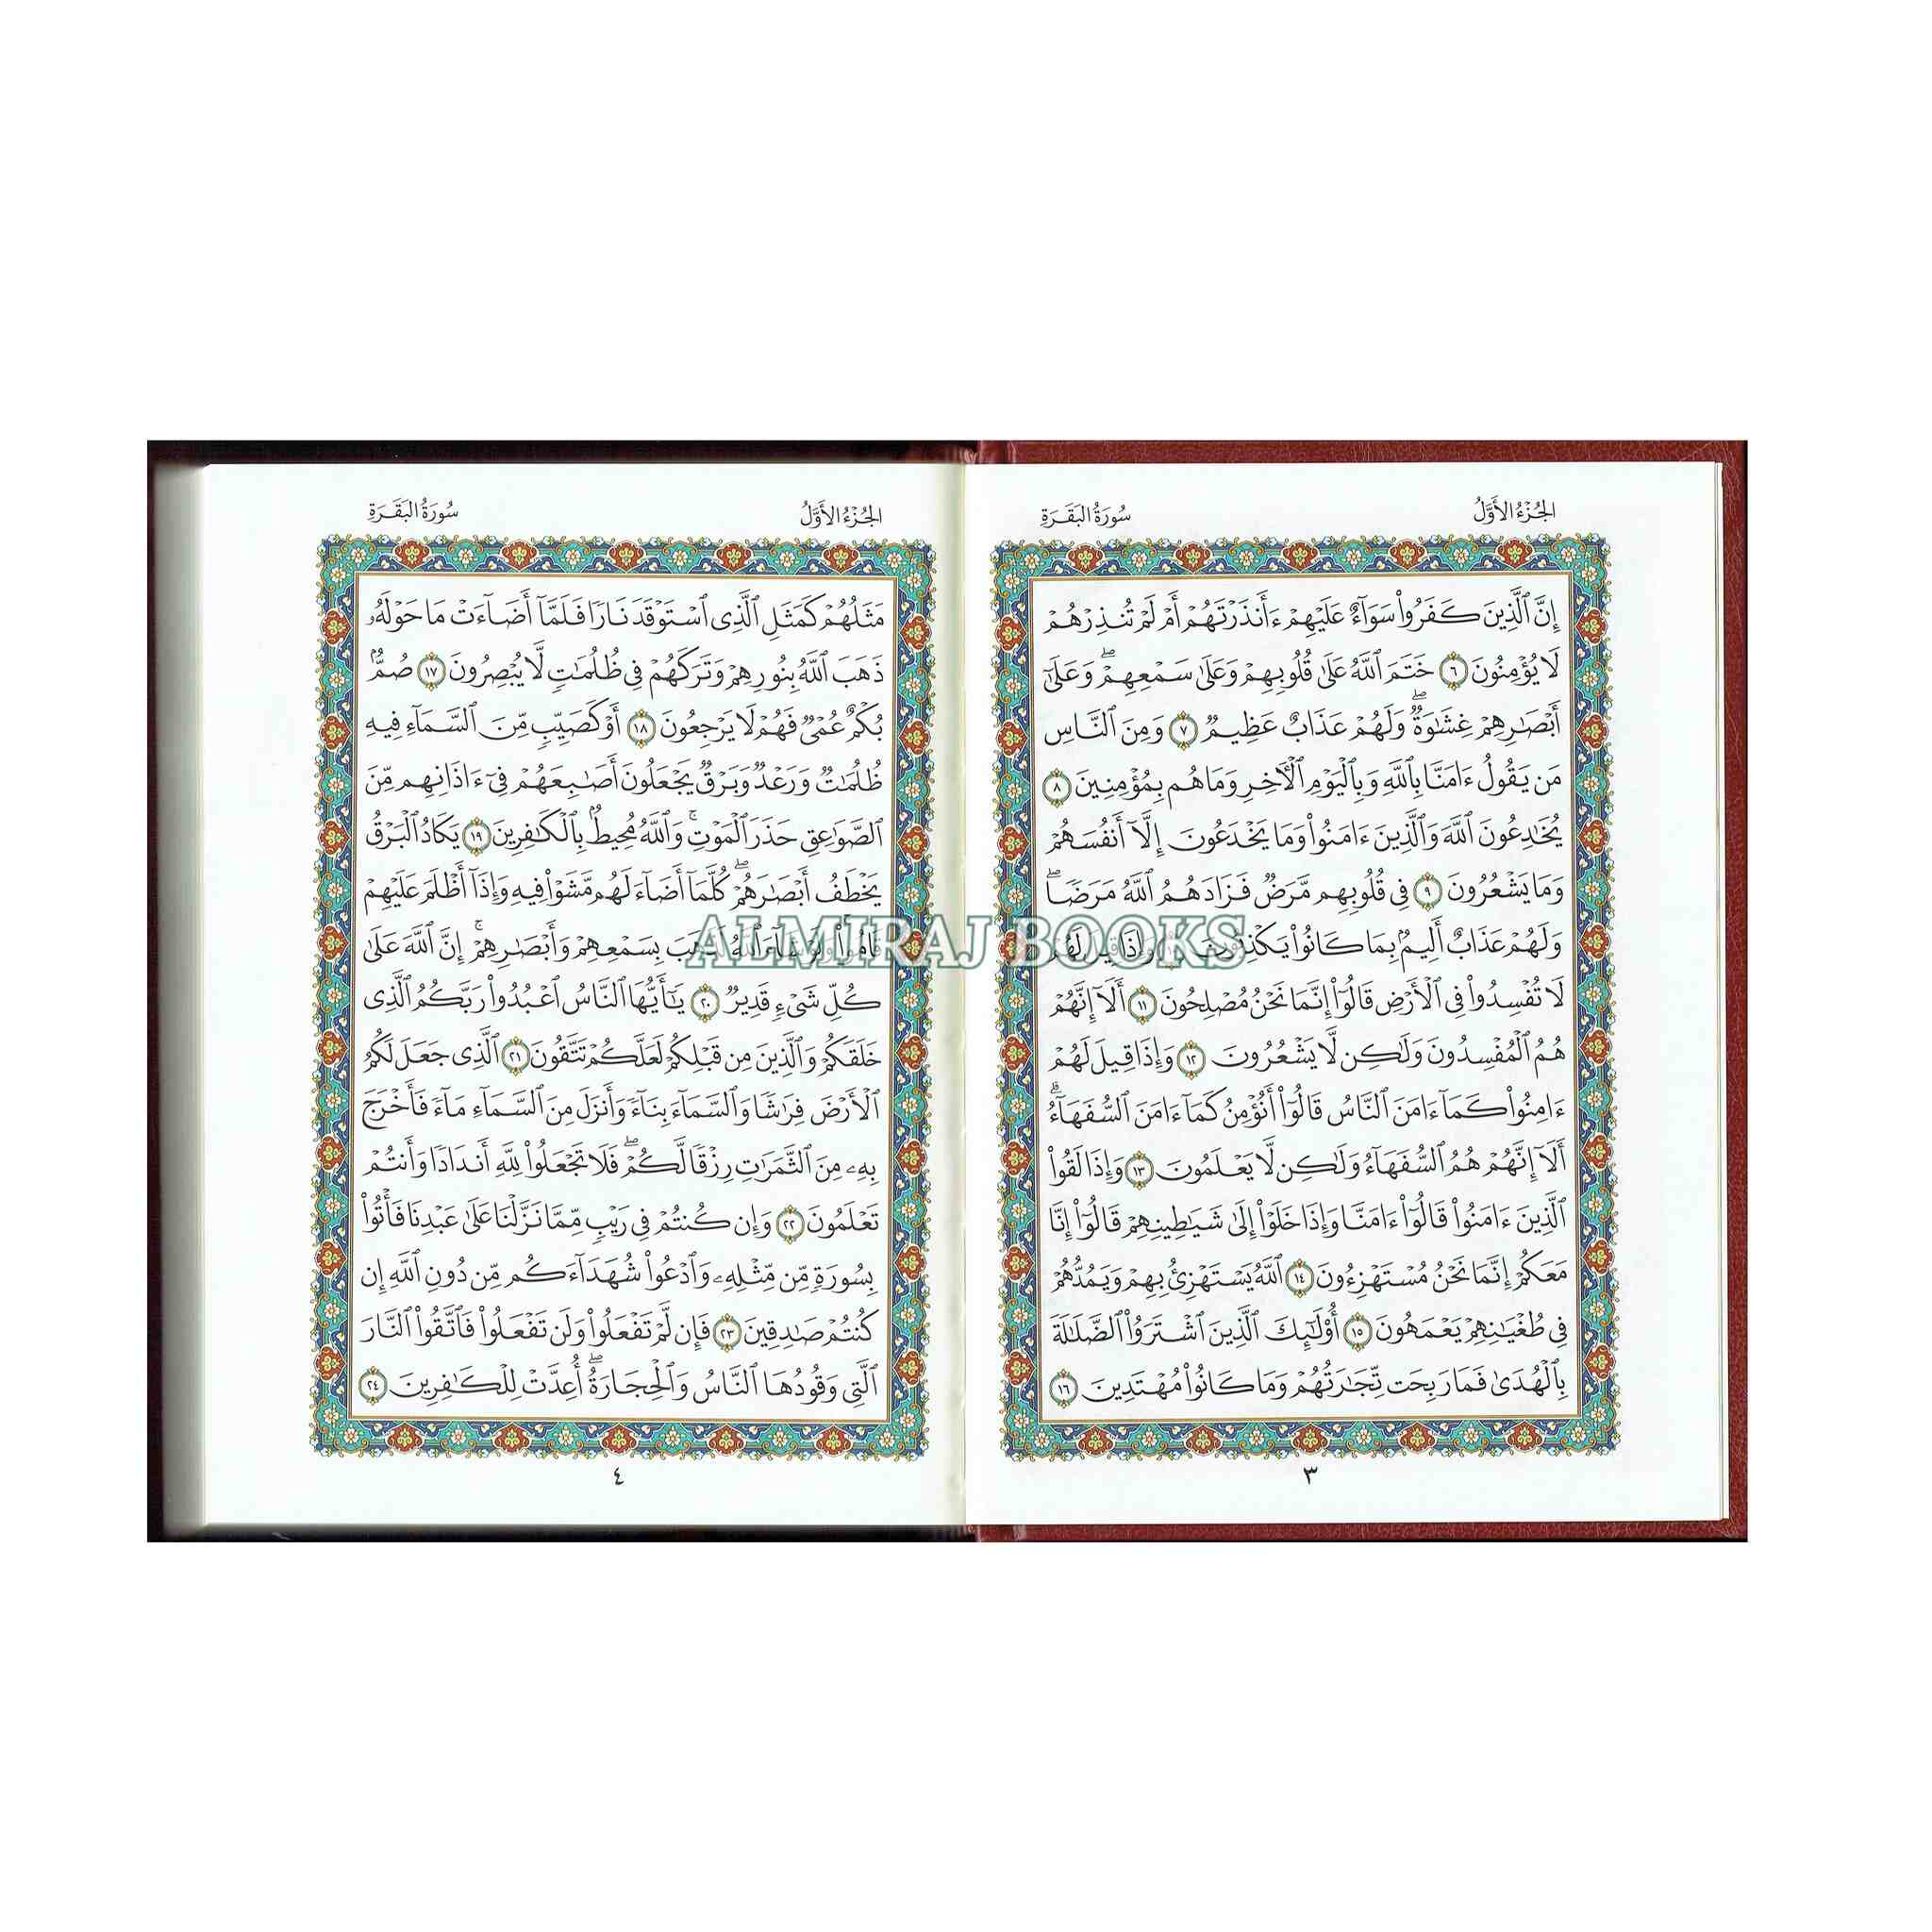 الجُزْءُ الأَوَّلُ
سُورَةُ البَقَرَةِ
إِنَّ ٱلَّذِينَ كَفَرُواْ سَوَآءٌ عَلَيْهِمْ ءَأَنذَرْتَهُمْ أَمْ لَمْ تُنذِرْهُمْ
لَا يُؤْمِنُونَ ٦ خَتَمَ ٱللَّهُ عَلَىٰ قُلُوبِهِمْ وَعَلَىٰ سَمْعِهِمْۖ وَعَلَىٰٓ
أَبْصَٰرِهِمْ غِشَٰوَةٌۖ وَلَهُمْ عَذَابٌ عَظِيمٌ ٧ وَمِنَ ٱلنَّاسِ
مَن يَقُولُ ءَامَنَّا بِٱللَّهِ وَبِٱلْيَوْمِ ٱلْأٓخِرِ وَمَا هُم بِمُؤْمِنِينَ ٨
يُخَٰدِعُونَ ٱللَّهَ وَٱلَّذِينَ ءَامَنُواْ وَمَا يَخْدَعُونَ إِلَّآ أَنفُسَهُمْ
وَمَا يَشْعُرُونَ ٩ فِى قُلُوبِهِم مَّرَضٌ فَزَادَهُمُ ٱللَّهُ مَرَضًاۖ
وَلَهُمْ عَذَابٌ أَلِيمٌۢ بِمَا كَانُواْ يَكْذِبُونَ ١٠ وَإِذَا قِيلَ لَهُمْ
لَا تُفْسِدُواْ فِى ٱلْأَرْضِ قَالُوٓاْ إِنَّمَا نَحْنُ مُصْلِحُونَ ١١ أَلَآ إِنَّهُمْ
هُمُ ٱلْمُفْسِدُونَ وَلَٰكِن لَّا يَشْعُرُونَ ١٢ وَإِذَا قِيلَ لَهُمْ
ءَامِنُواْ كَمَآ ءَامَنَ ٱلنَّاسُ قَالُوٓاْ أَنُؤْمِنُ كَمَآ ءَامَنَ ٱلسُّفَهَآءُۗ
أَلَآ إِنَّهُمْ هُمُ ٱلسُّفَهَآءُ وَلَٰكِن لَّا يَعْلَمُونَ ١٣ وَإِذَا لَقُواْ
ٱلَّذِينَ ءَامَنُواْ قَالُوٓاْ ءَامَنَّا وَإِذَا خَلَوْاْ إِلَىٰ شَيَٰطِينِهِمْ قَالُوٓاْ إِنَّا
مَعَكُمْ إِنَّمَا نَحْنُ مُسْتَهْزِءُونَ ١٤ ٱللَّهُ يَسْتَهْزِئُ بِهِمْ وَيَمُدُّهُمْ
فِى طُغْيَٰنِهِمْ يَعْمَهُونَ ١٥ أُوْلَٰٓئِكَ ٱلَّذِينَ ٱشْتَرَوُاْ ٱلضَّلَٰلَةَ
بِٱلْهُدَىٰ فَمَا رَبِحَت تِّجَٰرَتُهُمْ وَمَا كَانُواْ مُهْتَدِينَ ١٦
٣
الجُزْءُ الأَوَّلُ
سُورَةُ البَقَرَةِ
مَثَلُهُمْ كَمَثَلِ ٱلَّذِى ٱسْتَوْقَدَ نَارًا فَلَمَّآ أَضَآءَتْ مَا حَوْلَهُۥ
ذَهَبَ ٱللَّهُ بِنُورِهِمْ وَتَرَكَهُمْ فِى ظُلُمَٰتٍ لَّا يُبْصِرُونَ ١٧ صُمٌّۢ
بُكْمٌ عُمْىٌ فَهُمْ لَا يَرْجِعُونَ ١٨ أَوْ كَصَيِّبٍ مِّنَ ٱلسَّمَآءِ فِيهِ
ظُلُمَٰتٌ وَرَعْدٌ وَبَرْقٌ يَجْعَلُونَ أَصَٰبِعَهُمْ فِىٓ ءَاذَانِهِم مِّنَ
ٱلصَّوَٰعِقِ حَذَرَ ٱلْمَوْتِۚ وَٱللَّهُ مُحِيطٌۢ بِٱلْكَٰفِرِينَ ١٩ يَكَادُ ٱلْبَرْقُ
يَخْطَفُ أَبْصَٰرَهُمْۖ كُلَّمَآ أَضَآءَ لَهُم مَّشَوْاْ فِيهِ وَإِذَآ أَظْلَمَ عَلَيْهِمْ
قَامُواْۚ وَلَوْ شَآءَ ٱللَّهُ لَذَهَبَ بِسَمْعِهِمْ وَأَبْصَٰرِهِمْۚ إِنَّ ٱللَّهَ عَلَىٰ
كُلِّ شَىْءٍ قَدِيرٌ ٢٠ يَٰٓأَيُّهَا ٱلنَّاسُ ٱعْبُدُواْ رَبَّكُمُ ٱلَّذِى
خَلَقَكُمْ وَٱلَّذِينَ مِن قَبْلِكُمْ لَعَلَّكُمْ تَتَّقُونَ ٢١ ٱلَّذِى جَعَلَ لَكُمُ
ٱلْأَرْضَ فِرَٰشًا وَٱلسَّمَآءَ بِنَآءً وَأَنزَلَ مِنَ ٱلسَّمَآءِ مَآءً فَأَخْرَجَ
بِهِۦ مِنَ ٱلثَّمَرَٰتِ رِزْقًا لَّكُمْۖ فَلَا تَجْعَلُواْ لِلَّهِ أَندَادًا وَأَنتُمْ
تَعْلَمُونَ ٢٢ وَإِن كُنتُمْ فِى رَيْبٍ مِّمَّا نَزَّلْنَا عَلَىٰ عَبْدِنَا فَأْتُواْ
بِسُورَةٍ مِّن مِّثْلِهِۦ وَٱدْعُواْ شُهَدَآءَكُم مِّن دُونِ ٱللَّهِ إِن
كُنتُمْ صَٰدِقِينَ ٢٣ فَإِن لَّمْ تَفْعَلُواْ وَلَن تَفْعَلُواْ فَٱتَّقُواْ ٱلنَّارَ
ٱلَّتِى وَقُودُهَا ٱلنَّاسُ وَٱلْحِجَارَةُۖ أُعِدَّتْ لِلْكَٰفِرِينَ ٢٤
٤
ALMIRAJ BOOKS